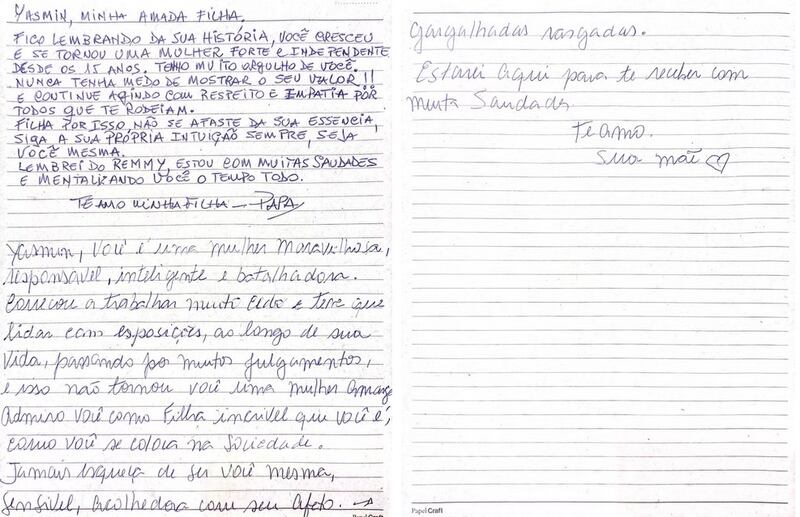 YASMIN, MINHA AMADA FILHA.
FICO LEMBRANDO DA SUA HISTÓRIA, VOCÊ CRESCEU
E SE TORNOU UMA MULHER FORTE E INDEPENDENTE
DESDE OS 15 ANOS, TENHO MUITO ORGULHO DE VOCÊ.
NUNCA TENHA MEDO DE MOSTRAR O SEU VALOR!!
E CONTINUE AGINDO COM RESPEITO E EMPATIA POR
TODOS QUE TE RODEIAM.
FILHA POR ISSO NÃO SE AFASTE DA SUA ESSENCIA,
SIGA A SUA PRÓPRIA INTUIÇÃO SEMPRE, SEJA
VOCÊ MESMA.
LEMBREI DO REMMY, ESTOU COM MUITAS SAUDADES
E MENTALIZANDO VOCÊ O TEMPO TODO.
TE AMO MINHA FILHA - PAPA
Yasmin, você é uma mulher maravilhosa,
responsável, inteligente e batalhadora.
Começou a trabalhar muito cedo e teve que
lidar com esposições, ao longo de sua
vida, passando por muitos julgamentos,
e isso não tornou você uma mulher amarga
Admiro você como filha incrivel que você é,
como você se coloca na Sociedade.
Jamais esqueça de ser você mesma,
Sensivel, acolhedora com seu afeto. →
Papel Craft
Gargalhadas rasgadas.
Estarei aqui para te receber com
muita Saudade.
Te amo.
Sua mãe ♡
Papel Craft